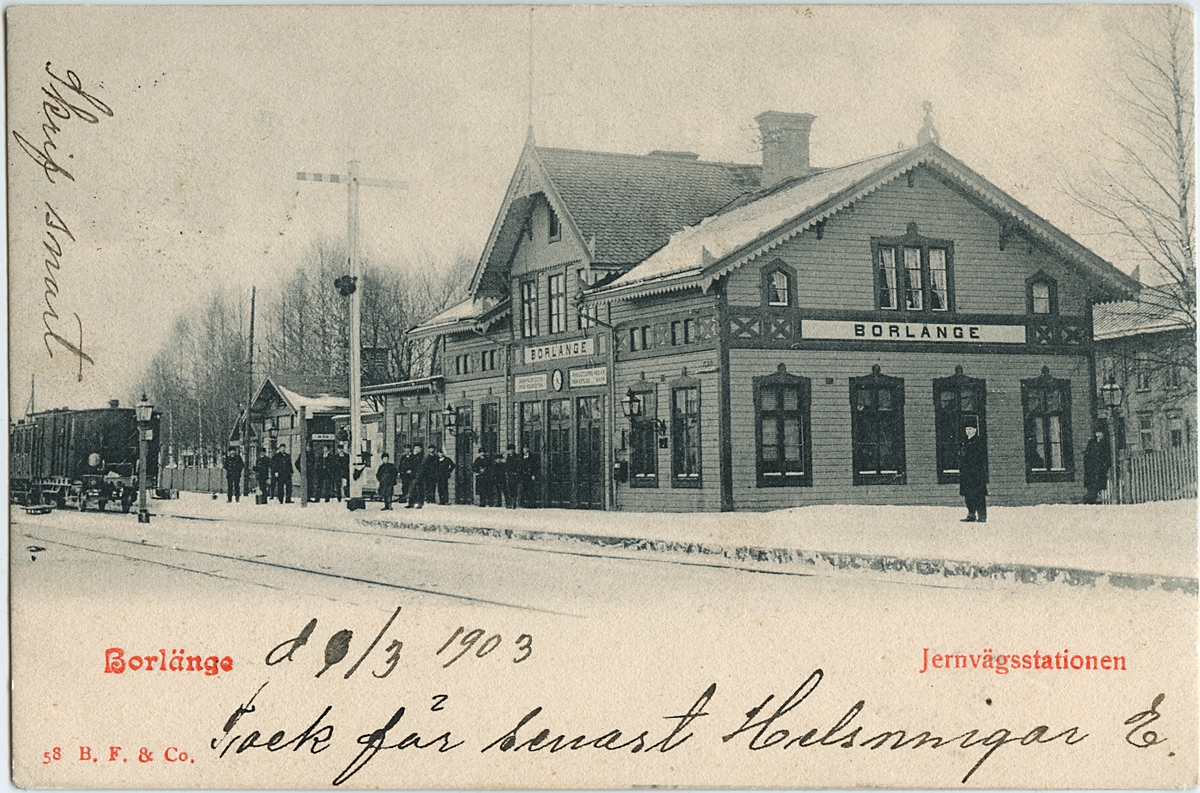 Skrif smart
BORLÄNGE
BORLÄNGE
Borlänge
d 9/3 1903
Jernvägsstationen
Tack får senast Helsningar E.
58 B. F. & Co.